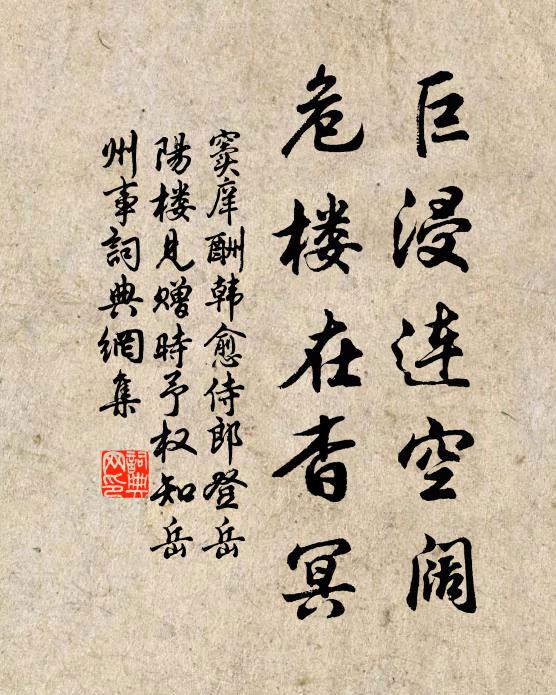 巨浸连空阔
危楼在杳冥
窦庠酬韩愈侍郎登岳
陽楼见赠時予权知岳
州事詞典網集
詞典网印